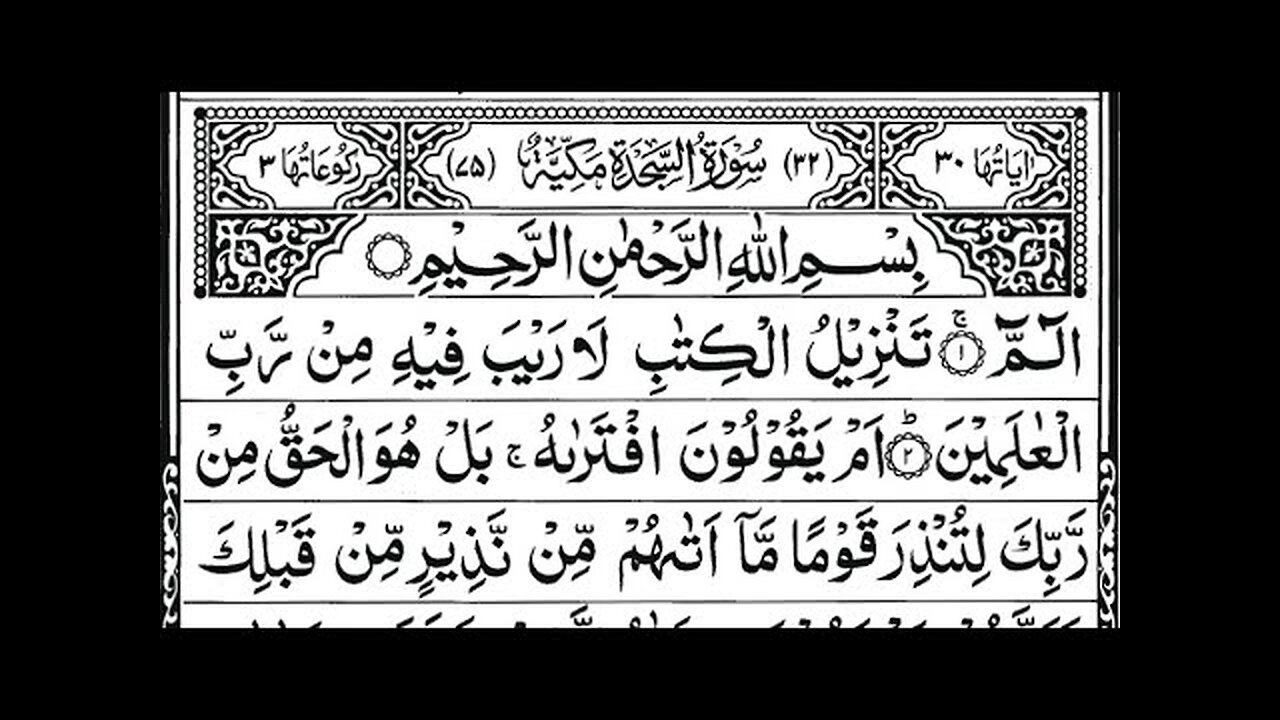 اٰيَاتُهَا ٣٠ (٣٢) سُوْرَةُ السَّجْدَةِ مَكِّيَّةٌ (٧٥) رُكُوْعَاتُهَا ٣
بِسْمِ اللّٰهِ الرَّحْمٰنِ الرَّحِيْمِ
الٓـمّٓ ۚ ﴿١﴾ تَنْزِيْلُ الْكِتٰبِ لَا رَيْبَ فِيْهِ مِنْ رَّبِّ
الْعٰلَمِيْنَ ؕ ﴿٢﴾ اَمْ يَقُوْلُوْنَ افْتَرٰىهُ ۚ بَلْ هُوَ الْحَقُّ مِنْ
رَّبِّكَ لِتُنْذِرَ قَوْمًا مَّاۤ اَتٰىهُمْ مِّنْ نَّذِيْرٍ مِّنْ قَبْلِكَ